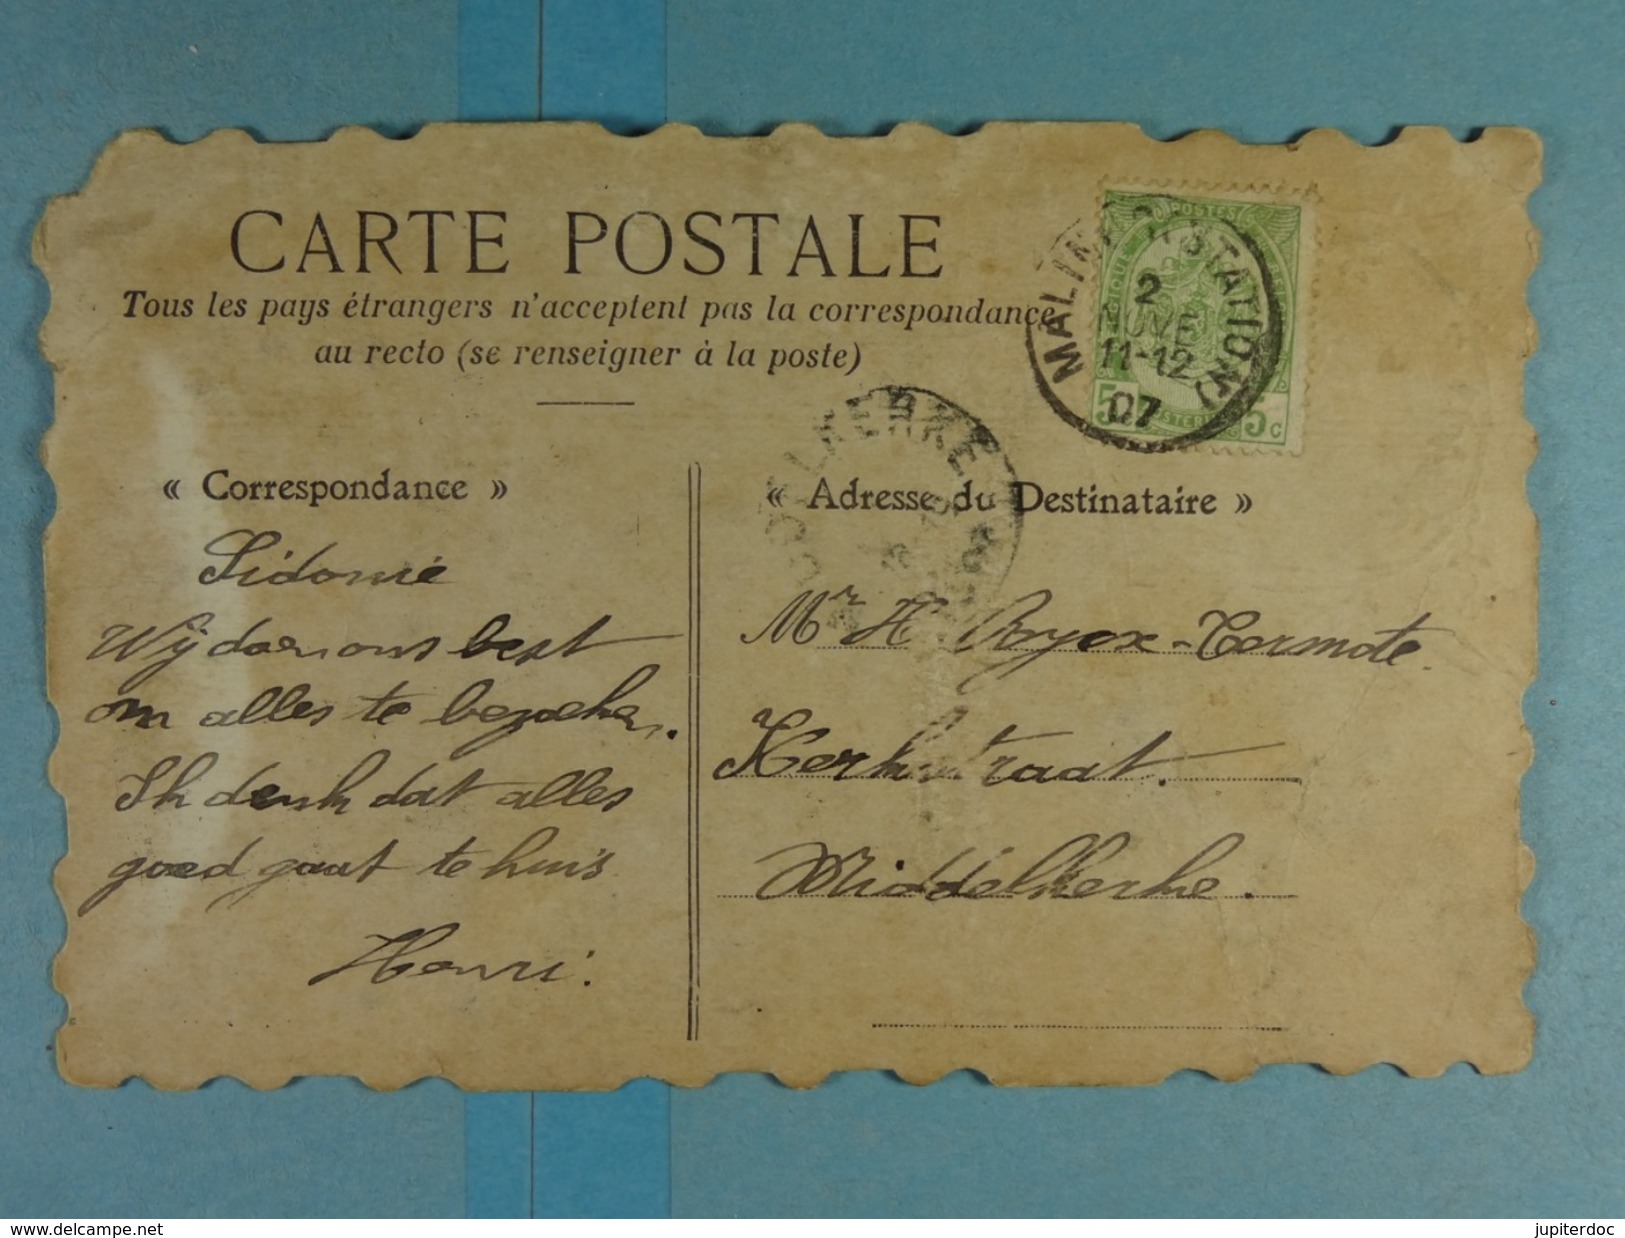 CARTE POSTALE
Tous les pays étrangers n'acceptent pas la correspondance
au recto (se renseigner à la poste)
POSTES
MALINES (STATION)
2
NOVE
11-12
07
5
5 c
« Correspondance »
« Adresse du Destinataire »
Sidonie
Wij doen ons best
om alles te bezoeken.
Ik denk dat alles
goed gaat te huis
Henri.
Mr H. Ryex-Termote.
Kerkstraat.
Middelkerke.
www.delcampe.net
jupiterdoc